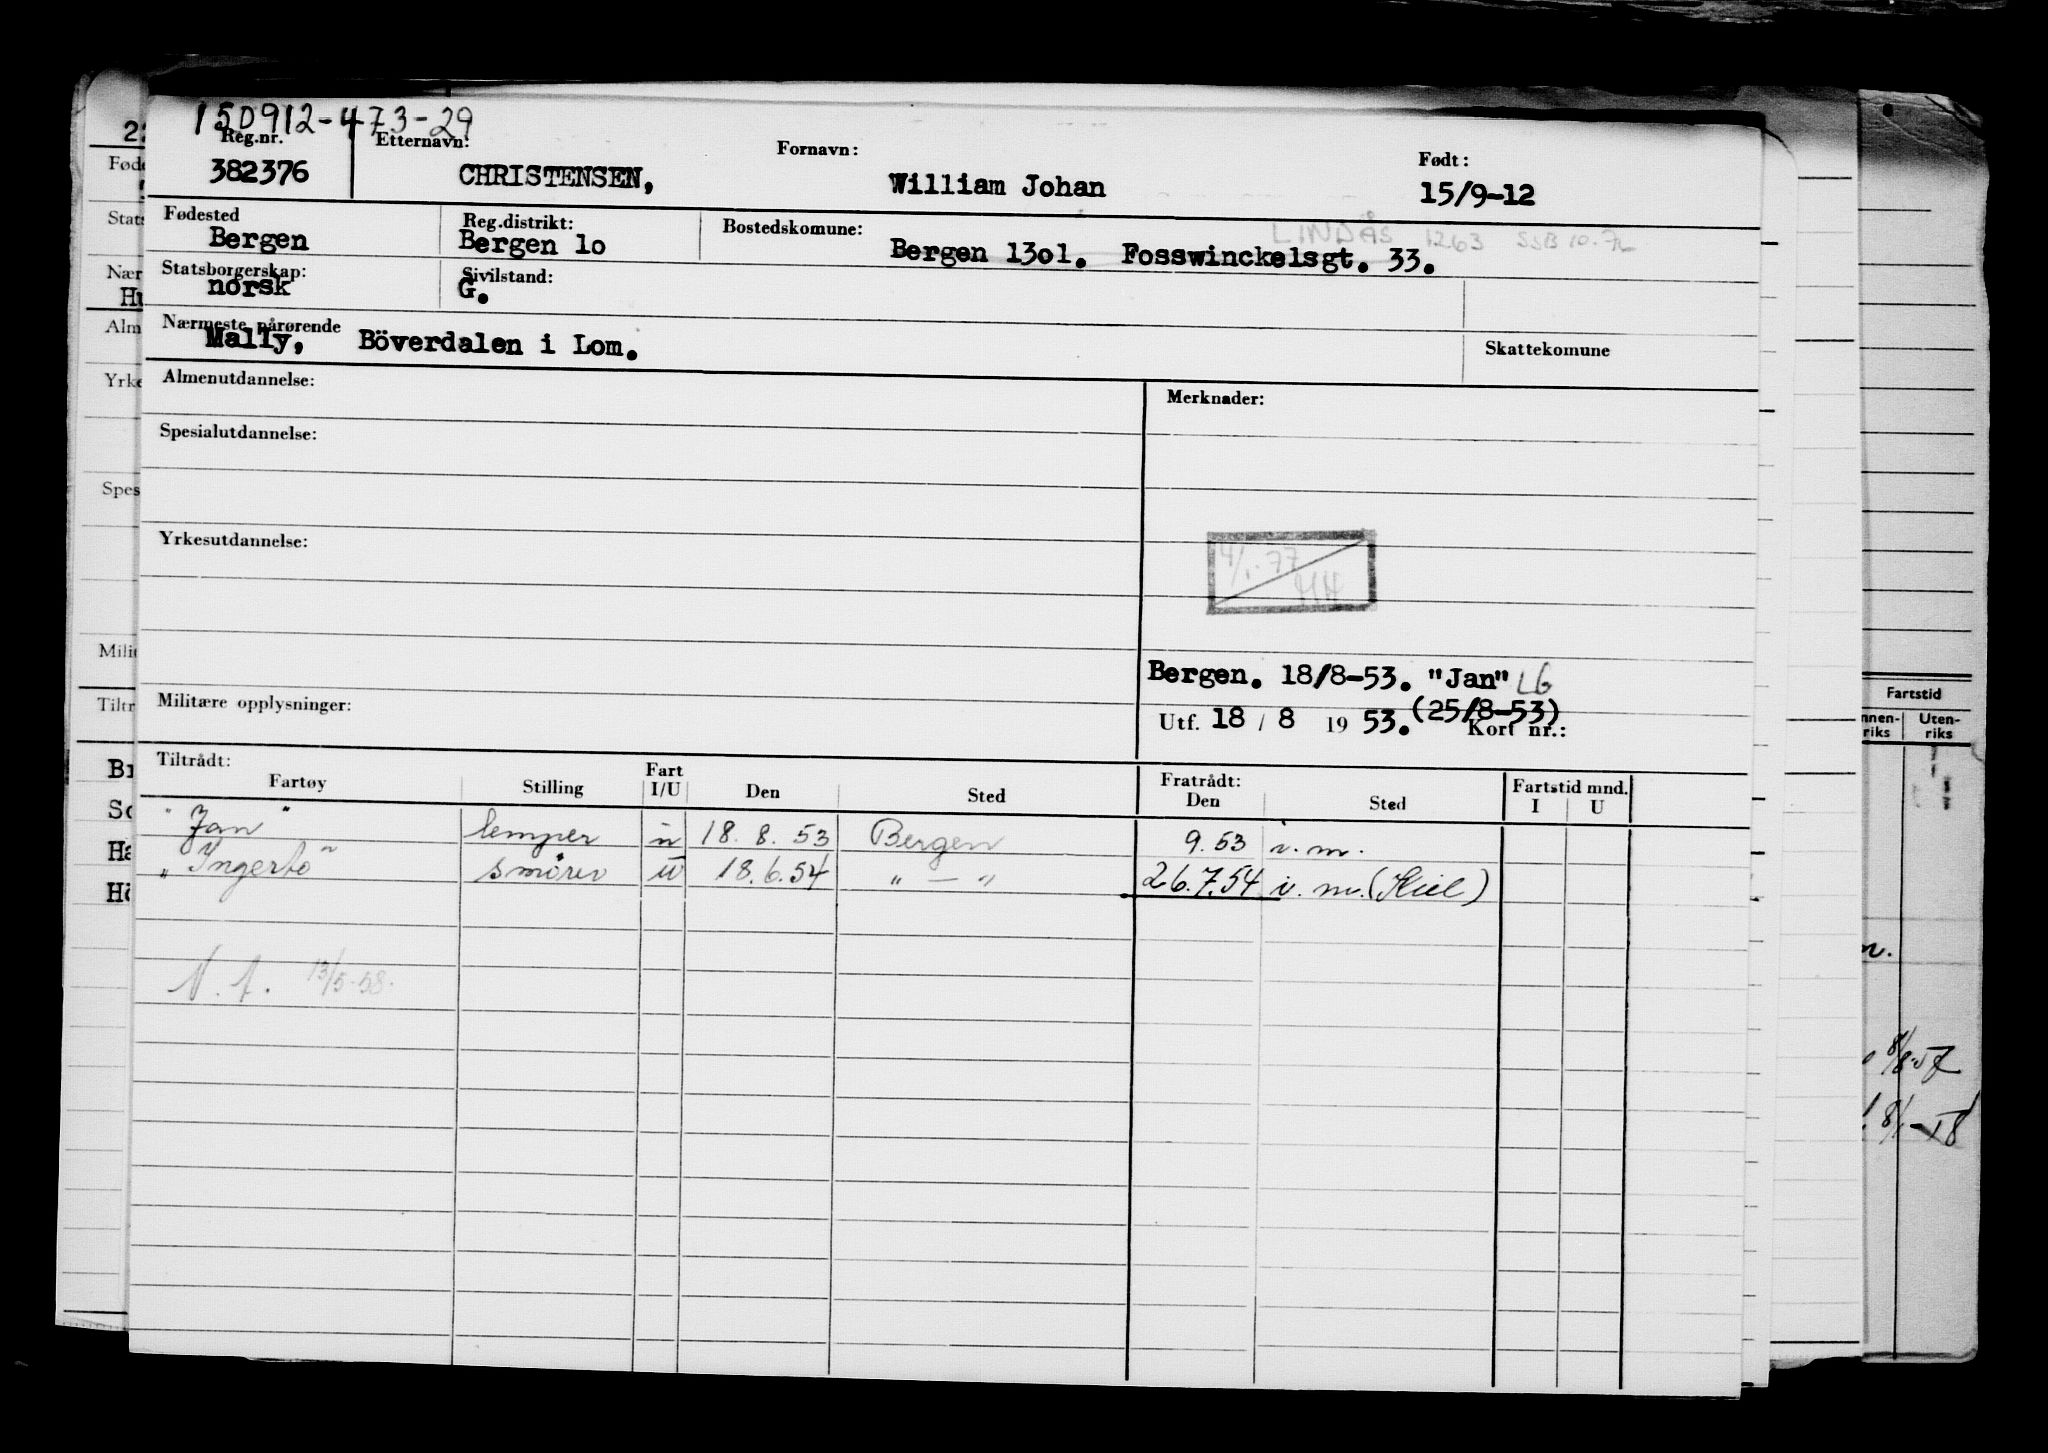 150912-473-29
Reg.nr. Etternavn: Fornavn: Født:
382376 CHRISTENSEN, William Johan 15/9-12
Fødested Reg.distrikt: Bostedskomune: LINDÅS 1263 SSB 10.76
Bergen Bergen 1o Bergen 13o1. Fosswinckelsgt. 33.
Statsborgerskap: Sivilstand:
norsk G.
Nærmeste pårørende Skattekomune
Mally, Böverdalen i Lom.
Almenutdannelse: Merknader:
Spesialutdannelse:
Yrkesutdannelse:
4/1.77
HH
Bergen. 18/8-53. "Jan" LG
Militære opplysninger: Utf. 18 / 8 19 53. (25/8-53) Kort nr.:
Tiltrådt: Fratrådt:
Fartøy Stilling Fart I/U Den Sted Den Sted Fartstid mnd. I U
"Jan" lemper u 18.8.53 Bergen 9.53 i.m.
"Ingertö" smører u 18.6.54 " — " 26.7.54 i.m. (Kiel)
N.f. 13/5-58.
Fartstid
Uten-
riks
8/8-57
8/1-58